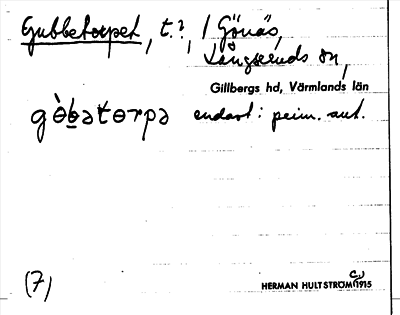 Gubbetorpet, t.?, / Gönäs,
Långseruds sn,
Gillbergs hd, Värmlands län
gə̀b̲ətɵrpə endast: peim. ant.
(7)
HERMAN HULTSTRÖM C:) 1915